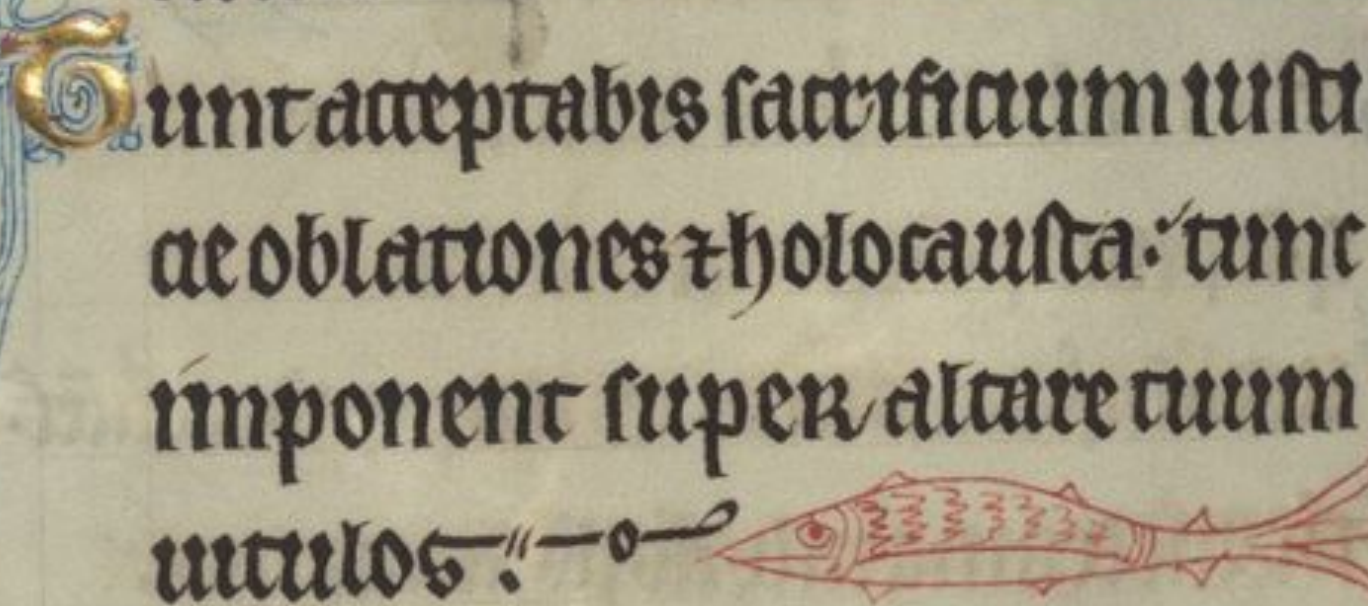 Tunc acceptabis sacrificium iusti
cie oblationes ⁊ holocausta: tunc
imponent super altare tuum
uitulos.